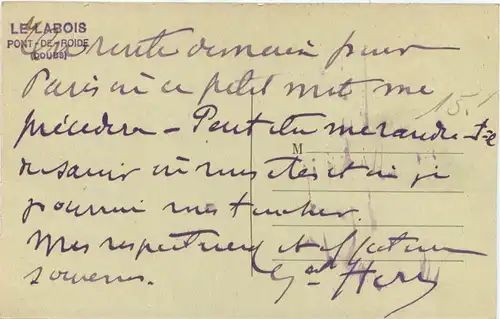 LE LABOIS
PONT-DE-ROIDE
(DOUBS)
En route demain pour
Paris où ce petit mot me
précédera - Peut-être me rendre-t-
de savoir où vous êtes et où je
pourrai vous toucher.
Mes respectueux et affectueux
souvenirs.
M
15.1